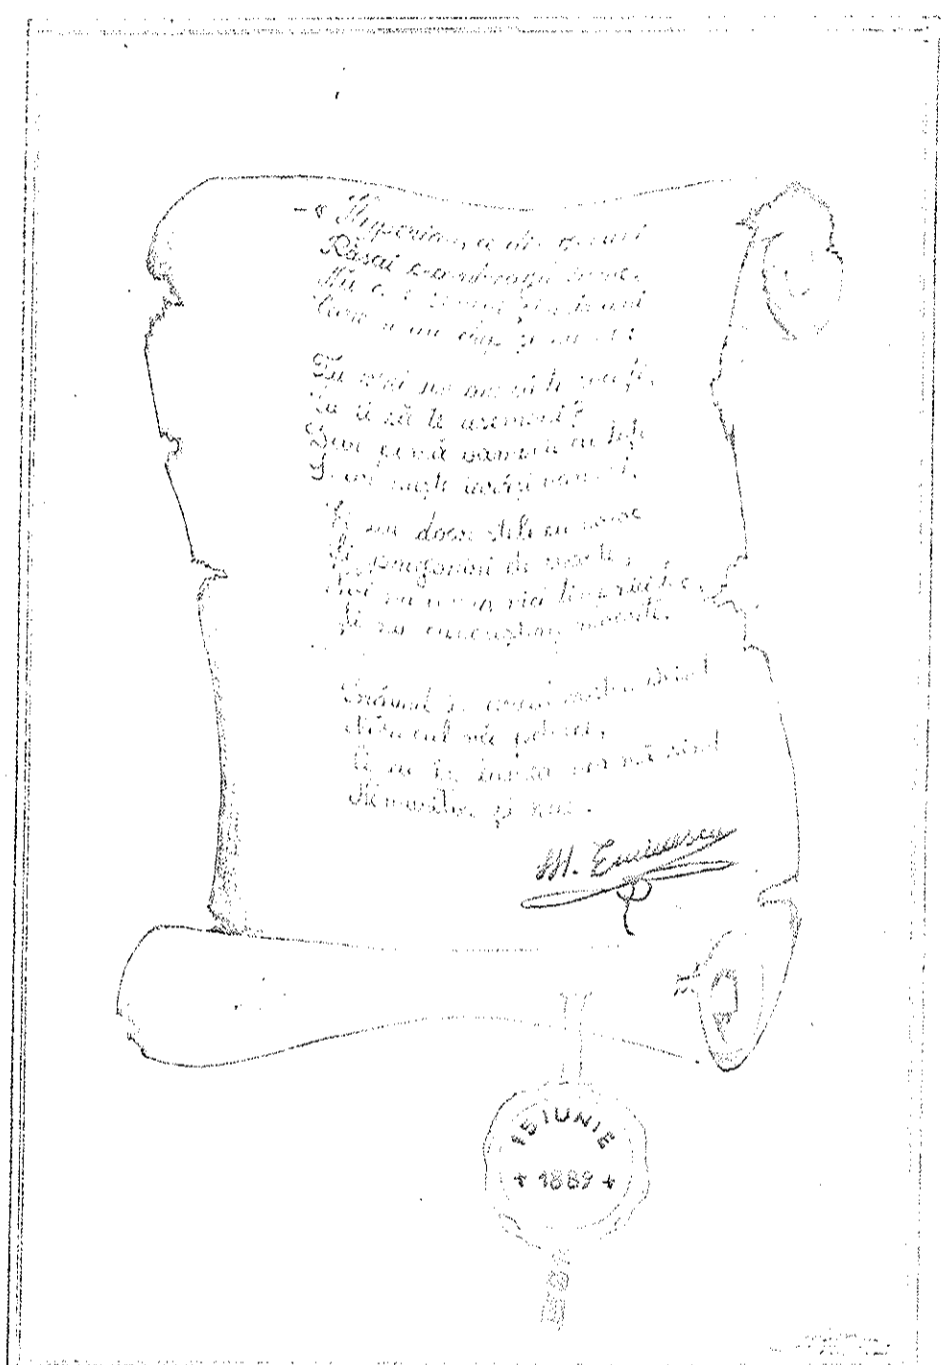 -« Hyperion, ce din genuni
Răsai c-o-ntreagă lume,
Nu cere semne și minuni
Care n-au chip și nume;
Tu vrei un om să te socoți,
Cu ei să te asemeni?
Dar piară oamenii cu toți
S-ar naște iarăși oameni.
Ei au doar stele cu noroc
Și prigoniri de soarte,
Noi nu avem nici timp, nici loc,
Și nu cunoaștem moarte.
Trăind în cercul vostru strâmt
Norocul vă petrece,
Ci eu în lumea mea mă simt
Nemuritor și rece.
M. Eminescu
15 IUNIE
+ 1889 +